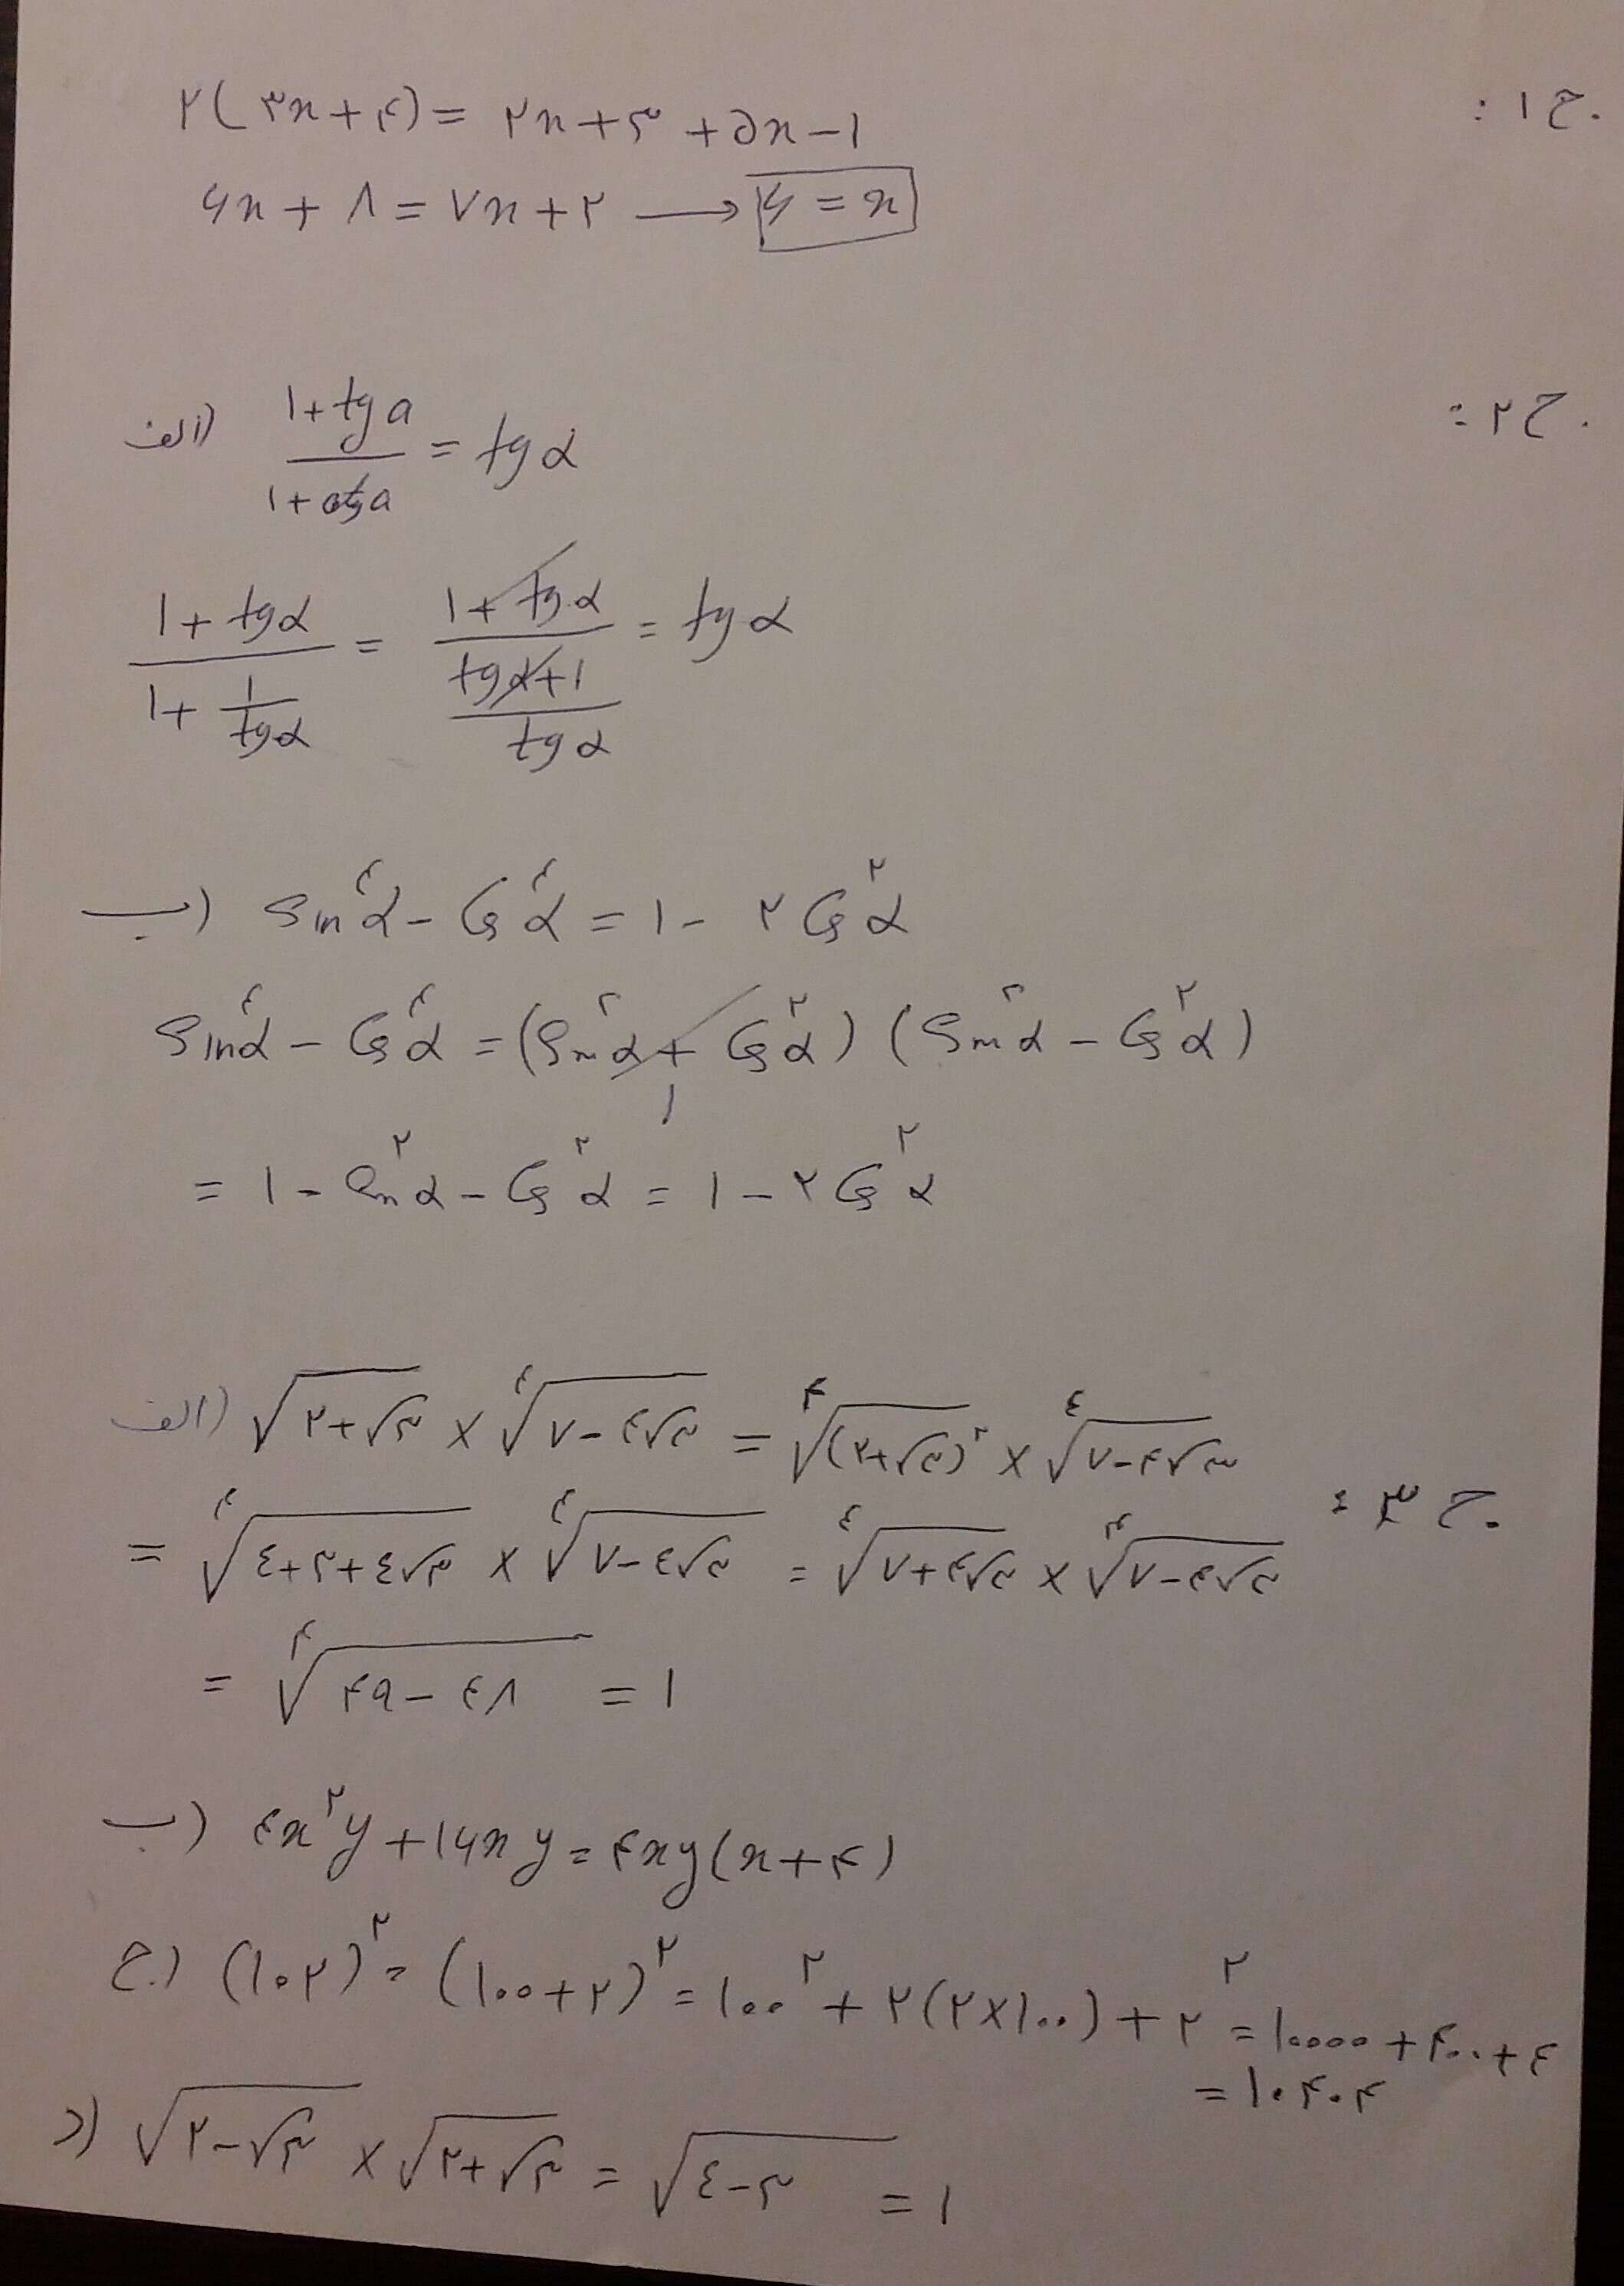 ج ۱ :
۲(۳x+۴)= ۲x+۳+۵x-۱
۶x+۸=۷x+۲ → ۶=x
ج ۲ :
الف) (1+tga)/(1+cotga) = tgα
(1+tgα)/(1+1/tgα) = (1+tgα)/((tgα+1)/tgα) = tgα
ب) Sin^۴α - Cos^۴α = ۱ - ۲Cos^۲α
Sin^۴α - Cos^۴α = (Sin^۲α + Cos^۲α) (Sin^۲α - Cos^۲α)
۱
= ۱ - Sin^۲α - Cos^۲α = ۱ - ۲Cos^۲α
ج ۳ :
الف) √(۲+√۳) × ۴√(۷-۴√۳) = ۴√((۲+√۳)^۲) × ۴√(۷-۴√۳)
= ۴√(۴+۳+۴√۳) × ۴√(۷-۴√۳) = ۴√(۷+۴√۳) × ۴√(۷-۴√۳)
= ۴√(۴۹-۴۸) = ۱
ب) ۴x^۲y+۱۶xy=۴xy(x+۴)
ج) (۱۰۲)^۲ = (۱۰۰+۲)^۲ = ۱۰۰^۲ + ۲(۲×۱۰۰) + ۲^۲ = ۱۰۰۰۰+۴۰۰+۴
= ۱۰۴۰۴
د) √(۲-√۳) × √(۲+√۳) = √(۴-۳) = ۱